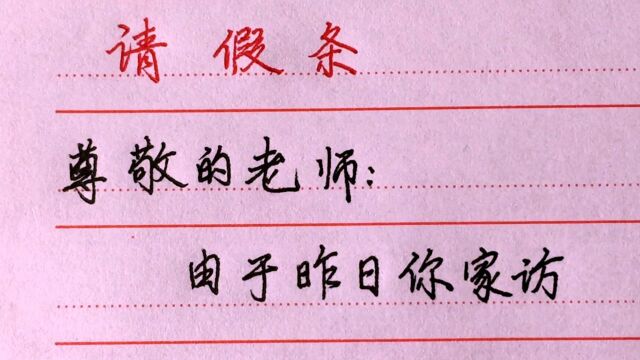 请假条
尊敬的老师:
由于昨日你家访